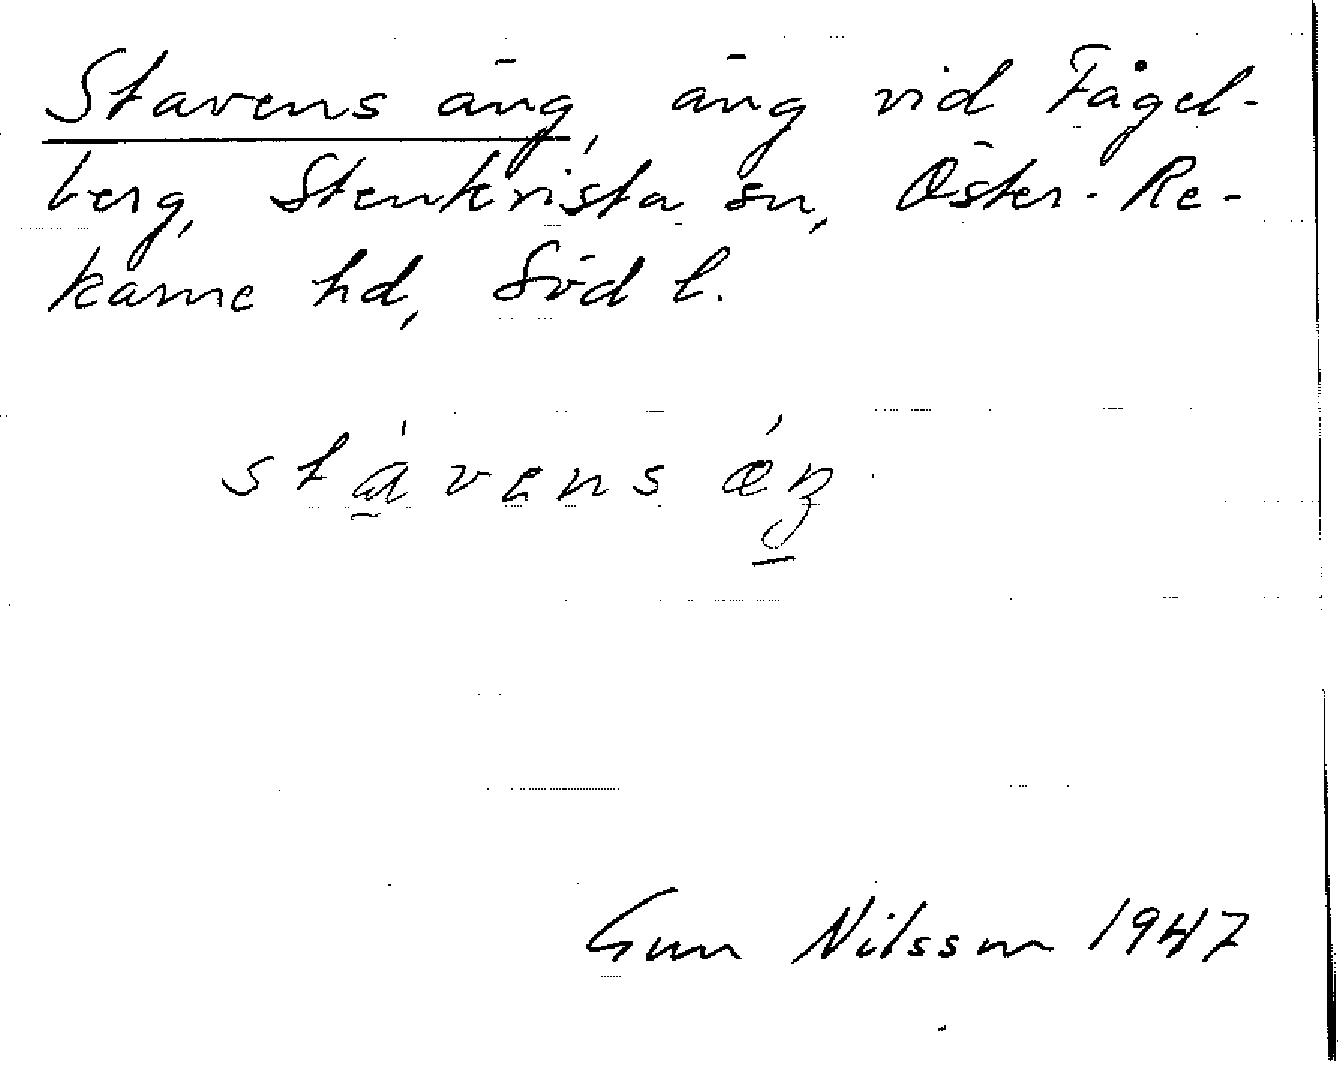 Stavens äng, äng vid Fågel-
berg, Stenkvista sn, Öster-Re-
karne hd, Söd l.
stávens ǽŋ
Gun Nilsson 1947